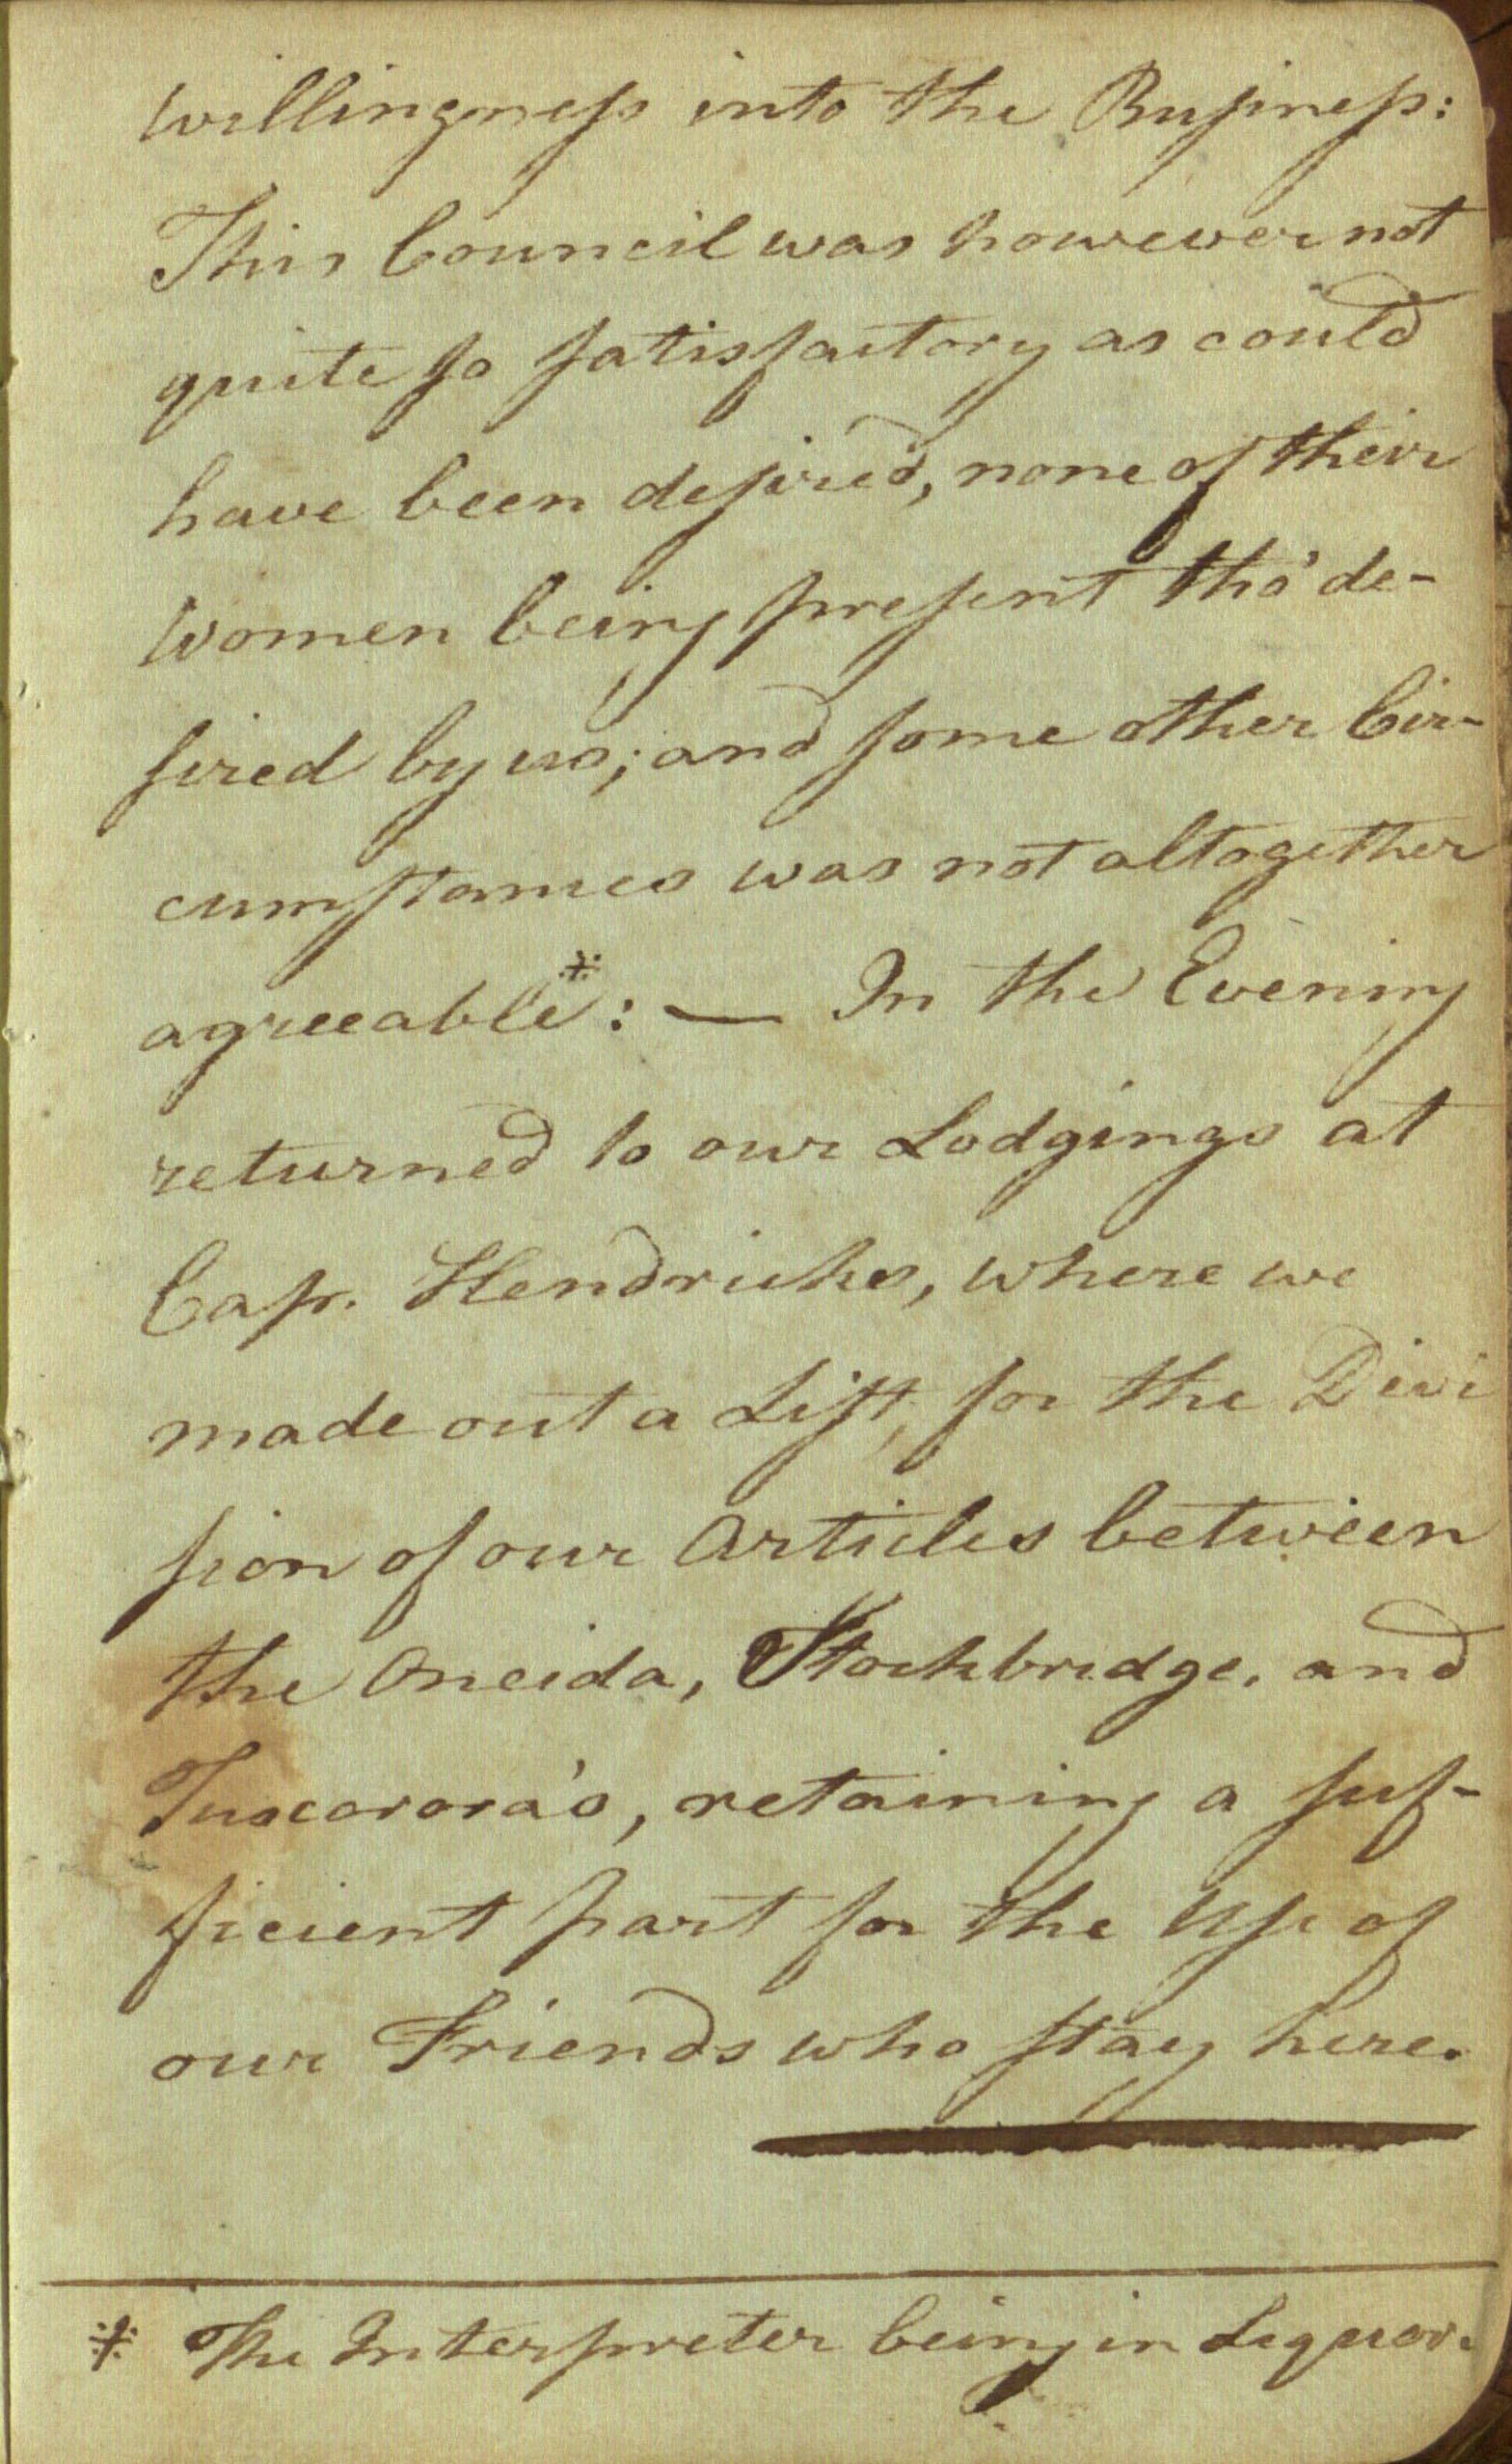 willingneſs into the Buſineſs:
This Council was however not
quite ſo ſatisfactory as could
have been deſired, none of their
Women being preſent tho' de-
ſired by us; and ſome other Cir-
cumſtances was not altogether
agreeable※: — In the Evening
returned to our Lodgings at
Cap. Hendricks, where we
made out a Liſt, for the Divi
ſion of our Articles between
the Oneida, Stockbridge, and
Tuscarora's, retaining a ſuf-
ficient part for the Uſe of
our Friends who ſtay here.
※ The Interpreter being in Liquor.